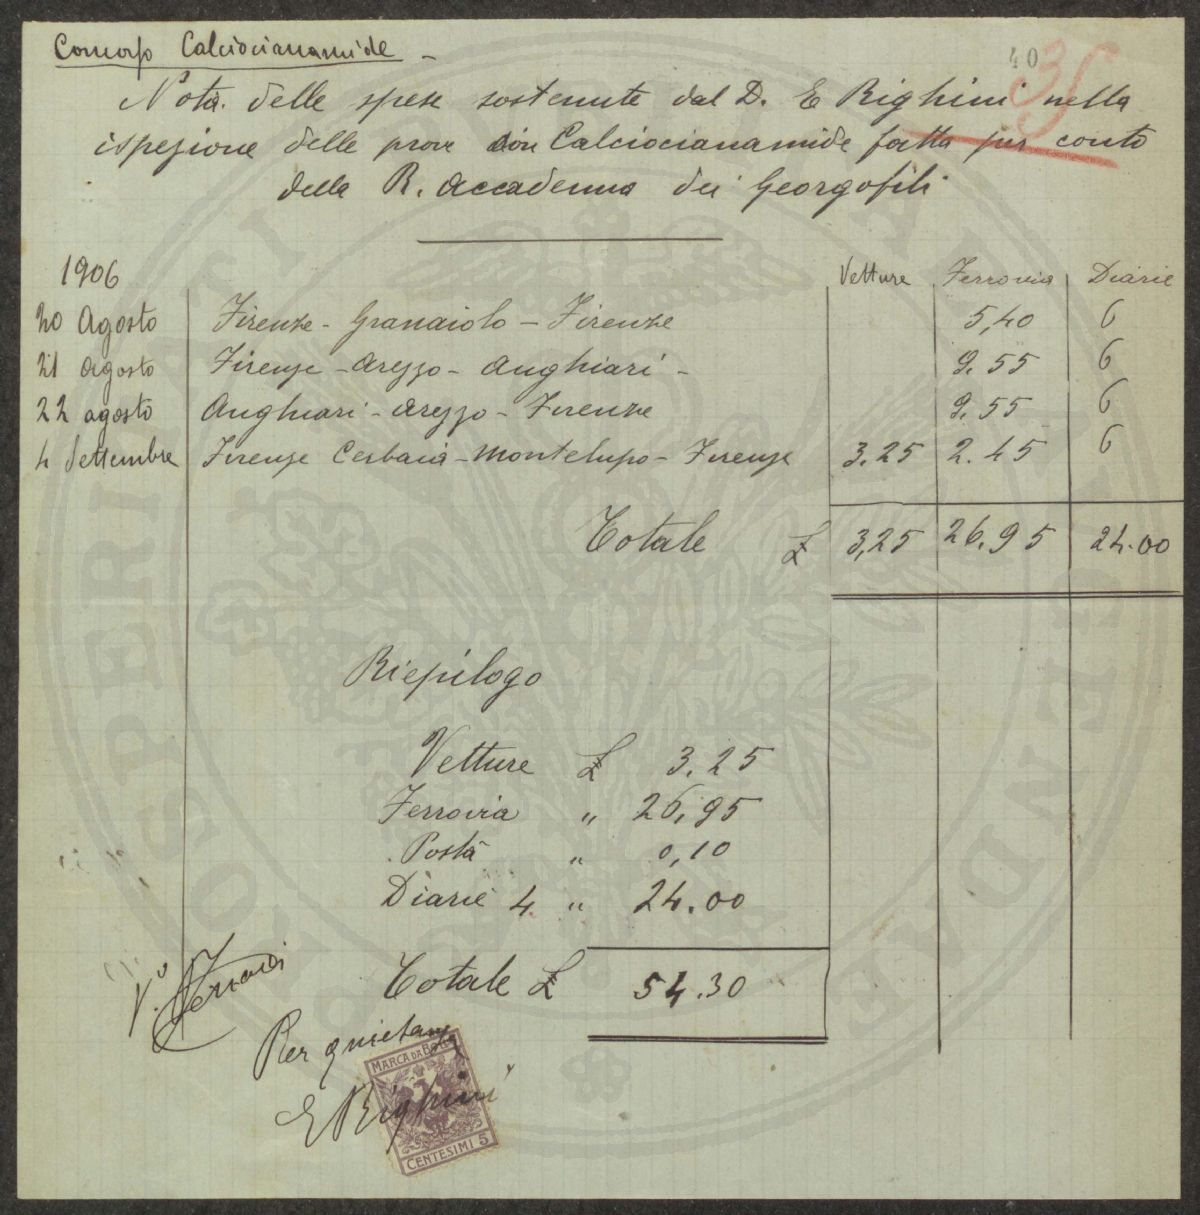 Concorso Calciocianamide -
40
35
Nota delle spese sostenute dal D. E Righini nella
ispezione delle prove con Calciocianamide fatta per conto
della R. Accademia dei Georgofili
1906 Vetture Ferrovia Diarie
20 Agosto Firenze - Granaiolo - Firenze 5,40 6
21 Agosto Firenze - Arezzo - Anghiari - 9.55 6
22 agosto Anghiari - Arezzo - Firenze 9.55 6
4 Settembre Firenze Cerbaia - Montelupo - Firenze 3.25 2.45 6
Totale £ 3,25 26.95 24.00
Riepilogo
Vetture £ 3.25
Ferrovia " 26,95
Posta " 0,10
Diarie 4 " 24.00
Totale £ 54.30
V.°
Per quietanza
E Righini
MARCA DA BOLLO
CENTESIMI 5
PROSPERITATI PUBLICAE AUGENDAE